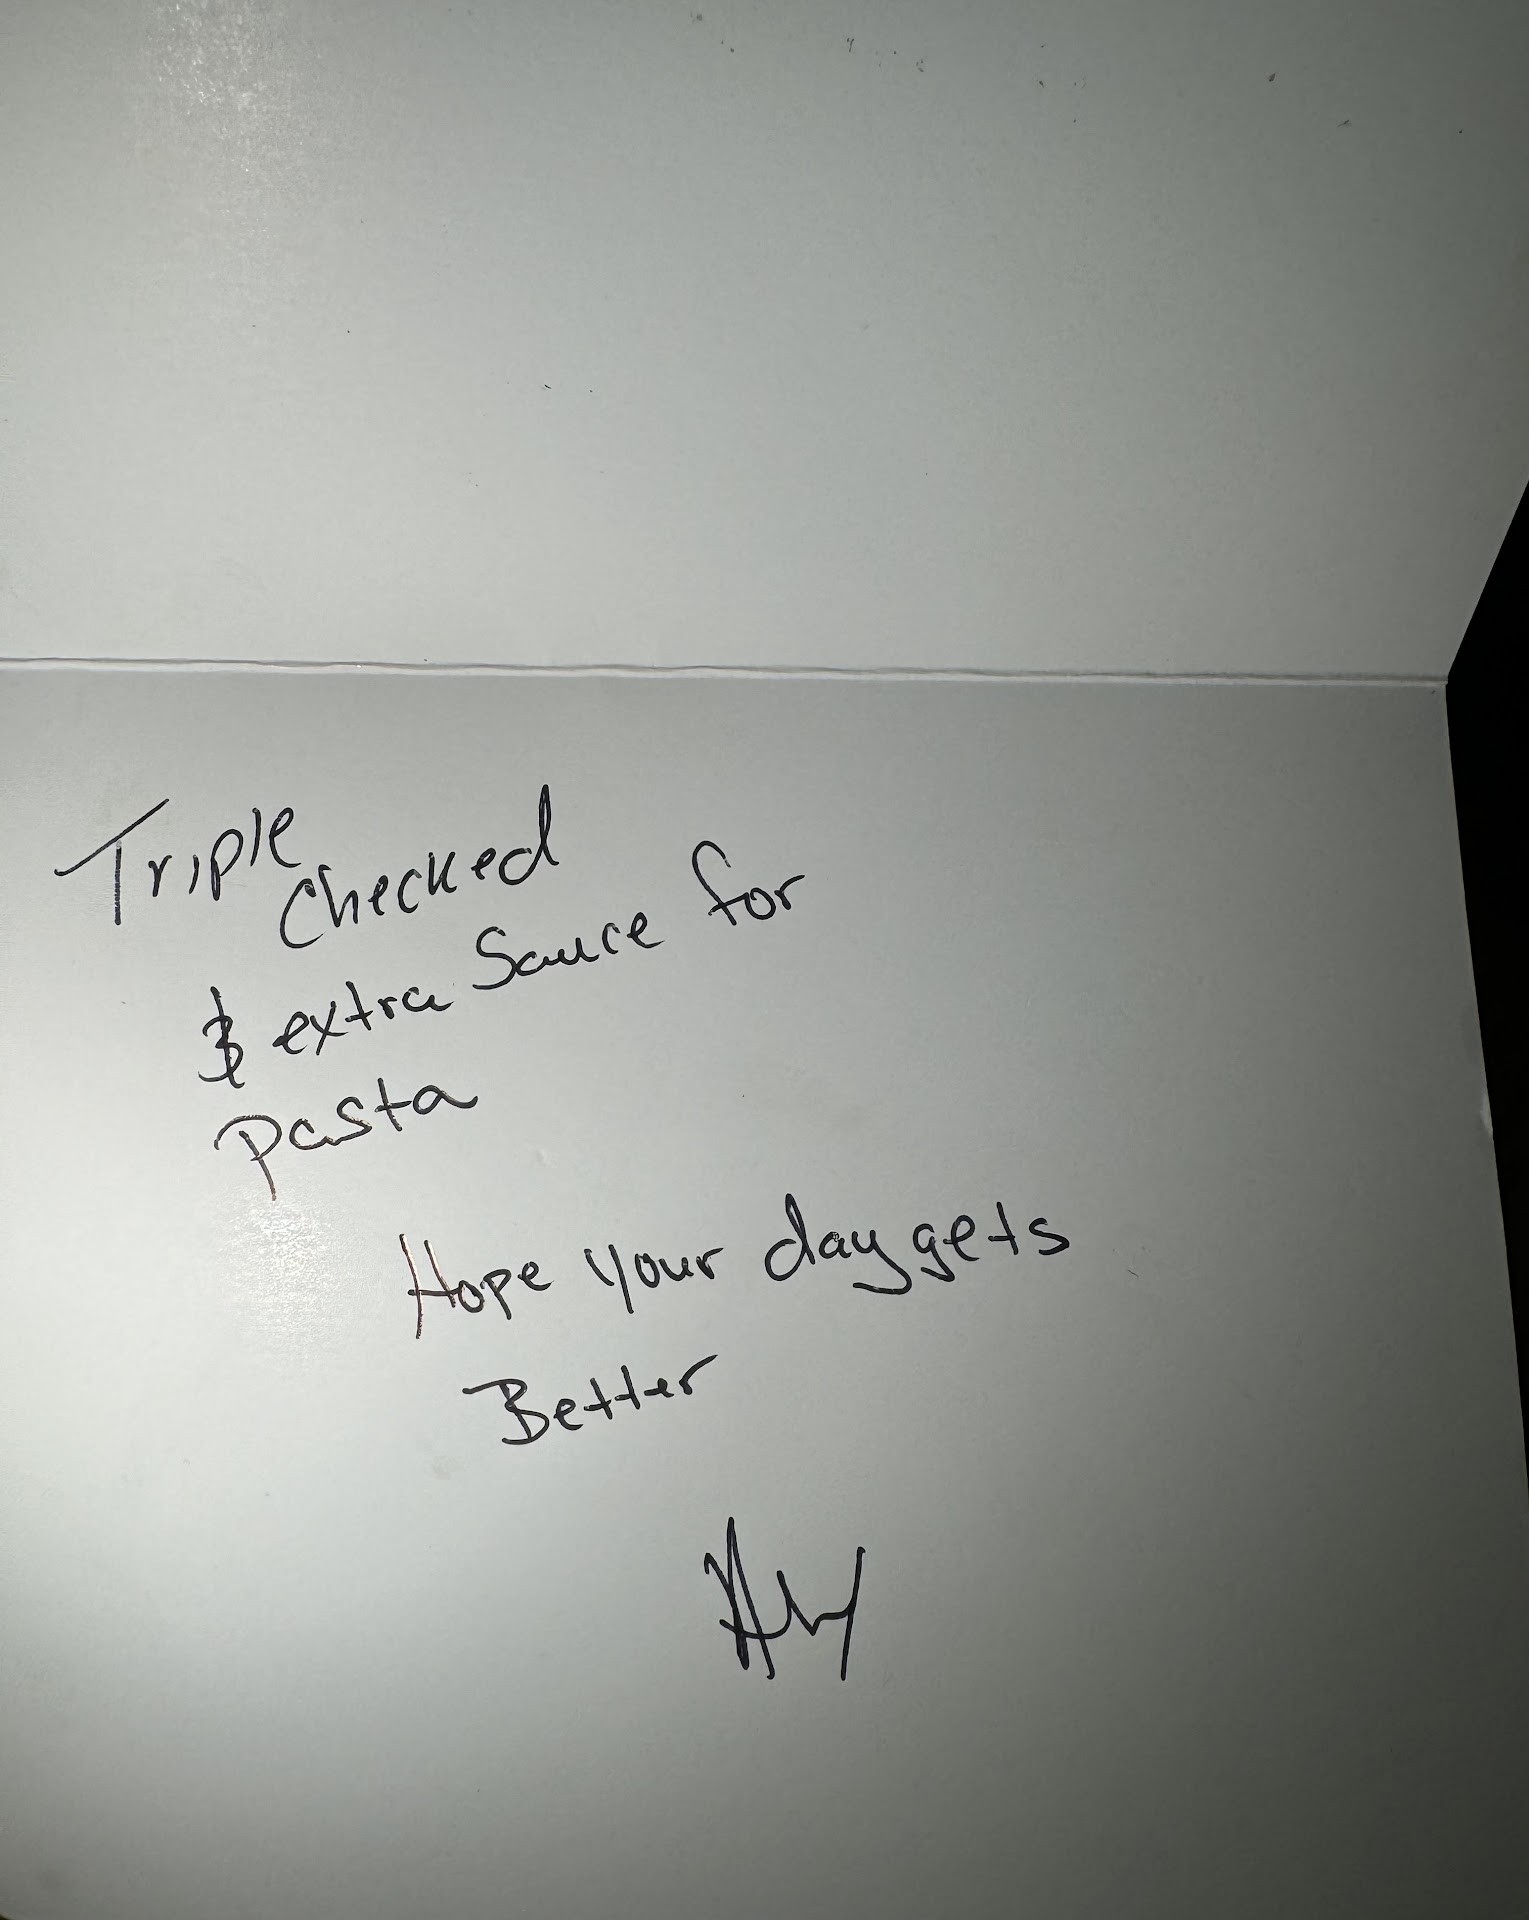 Triple
Checked
& extra Sauce for
Pasta
Hope your day gets
Better